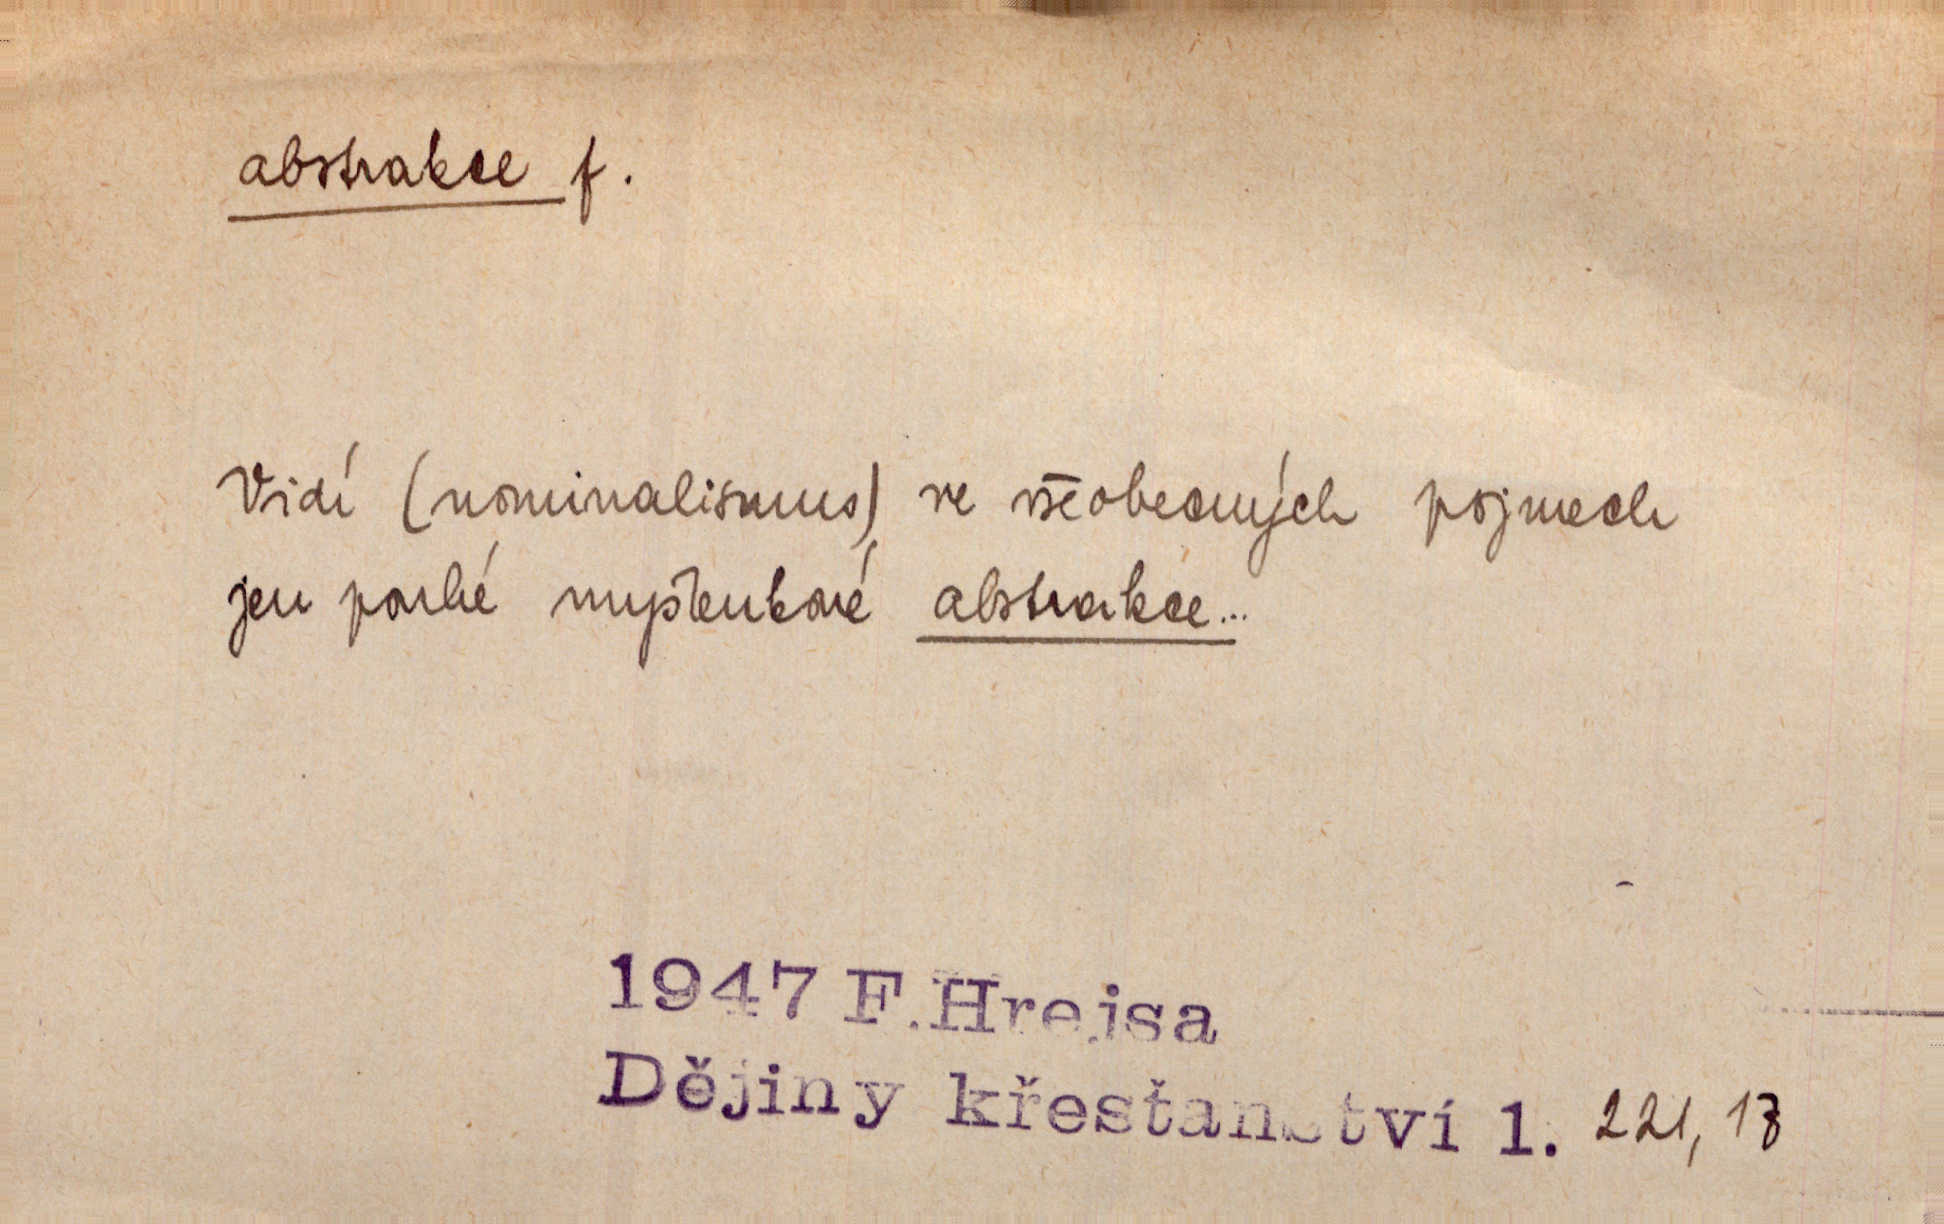 abstrakce f.
Vidí (nominalismus) ve všeobecných pojmech
jen pouhé myšlenkové abstrakce...
1947 F. Hrejsa
Dějiny křesťanství 1. 221, 13